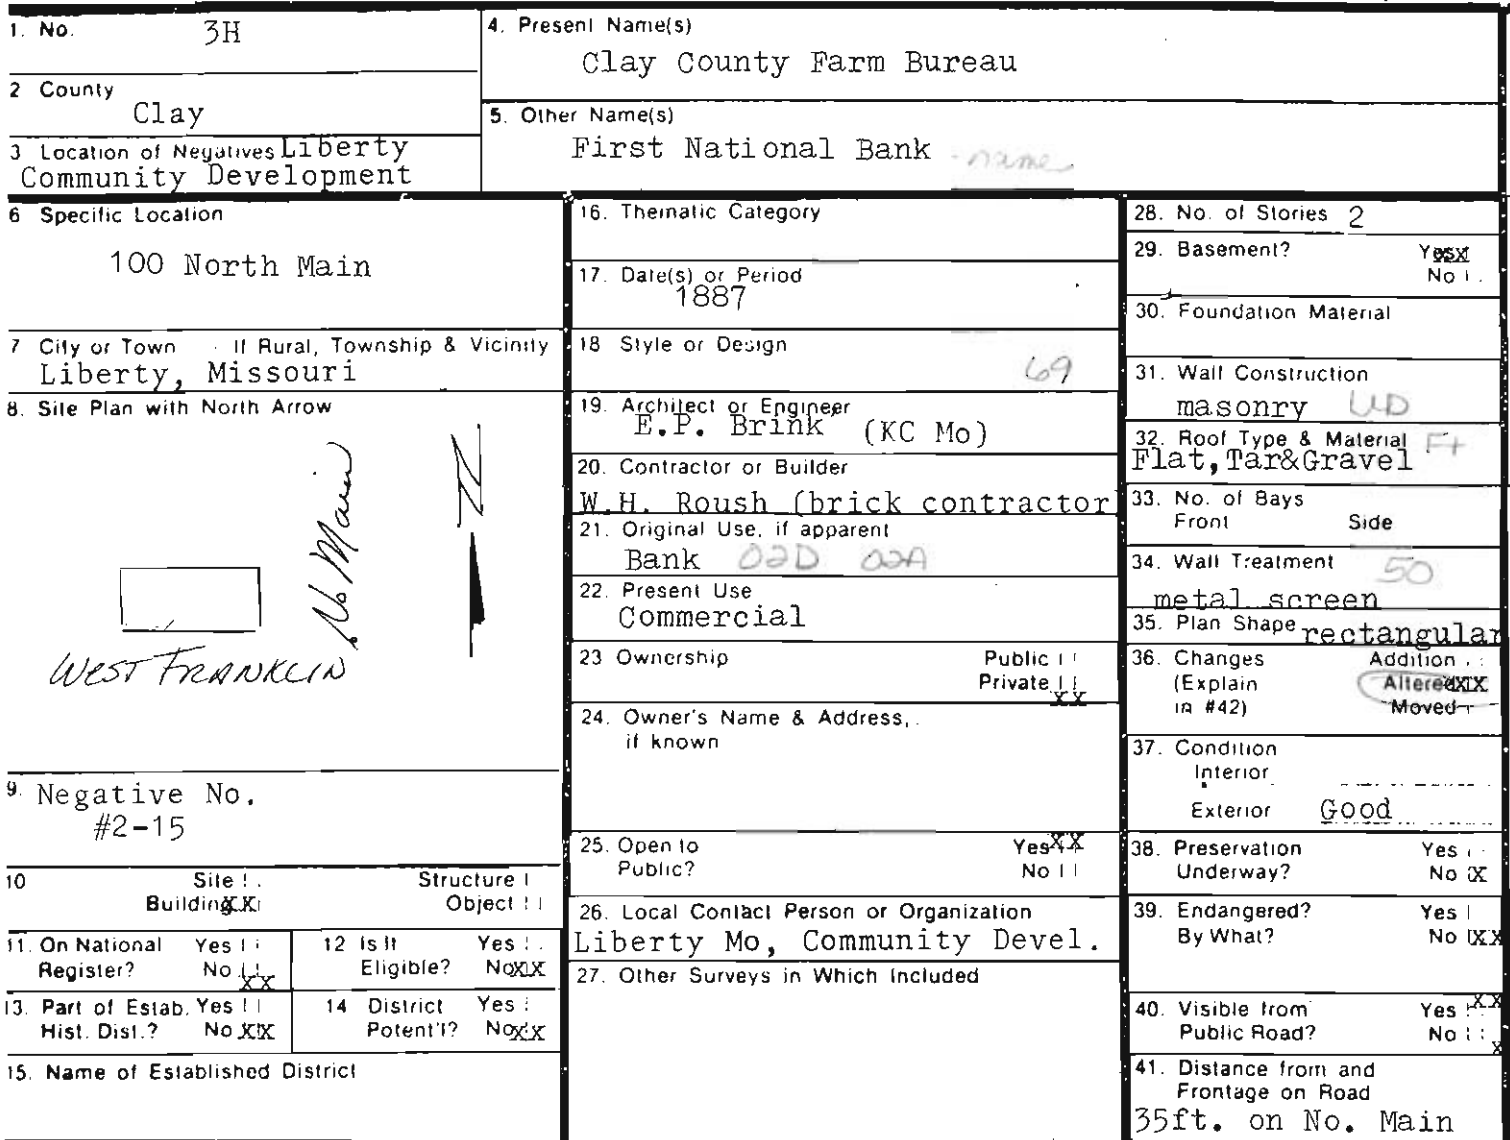 1. No. 3H
2 County
Clay
3 Location of Negatives Liberty
Community Development
4. Present Name(s)
Clay County Farm Bureau
5. Other Name(s)
First National Bank name
6 Specific Location
100 North Main
7 City or Town If Rural, Township & Vicinity
Liberty, Missouri
8. Site Plan with North Arrow
No Main
N
WEST FRANKLIN
9. Negative No.
#2-15
10 Site Structure
Building XX Object
11. On National Yes
Register? No XX
12 Is It Yes
Eligible? No XX
13. Part of Estab. Yes
Hist. Dist.? No XX
14 District Yes
Potent'l? No XX
15. Name of Established District
16. Thematic Category
17. Date(s) or Period
1887
18 Style or Design
69
19. Architect or Engineer
E.P. Brink (KC Mo)
20. Contractor or Builder
W.H. Roush (brick contractor
21. Original Use, if apparent
Bank 02D 02A
22. Present Use
Commercial
23 Ownership Public
Private XX
24. Owner's Name & Address,
if known
25. Open to Yes XX
Public? No
26. Local Contact Person or Organization
Liberty Mo, Community Devel.
27. Other Surveys in Which Included
28. No. of Stories 2
29. Basement? Yes X
No
30. Foundation Material
31. Wall Construction
masonry UD
32. Roof Type & Material Ft
Flat,Tar&Gravel
33. No. of Bays
Front Side
34. Wall Treatment 50
metal screen
35. Plan Shape rectangular
36. Changes Addition
(Explain Altered XX
in #42) Moved
37. Condition
Interior
Exterior Good
38. Preservation Yes
Underway? No X
39. Endangered? Yes
By What? No XX
40. Visible from Yes XX
Public Road? No
41. Distance from and
Frontage on Road
35ft. on No. Main